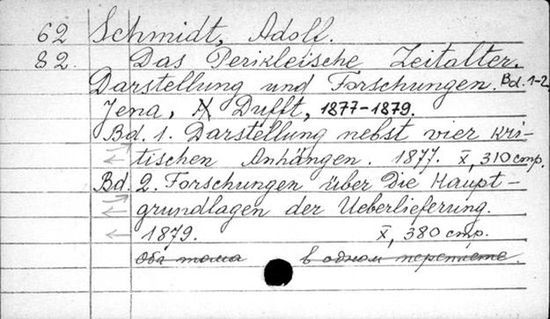 62 Schmidt, Adolf.
82. Das Perikleische Zeitalter.
Darstellung und Forschungen. Bd. 1-2
Jena, Dufft, 1877-1879.
Bd. 1. Darstellung nebst vier kri-
tischen Anhängen. 1877. X, 310 стр.
Bd. 2. Forschungen über die Haupt-
grundlagen der Ueberlieferung.
1879. X, 380 стр.
Оба тома в одном переплете.